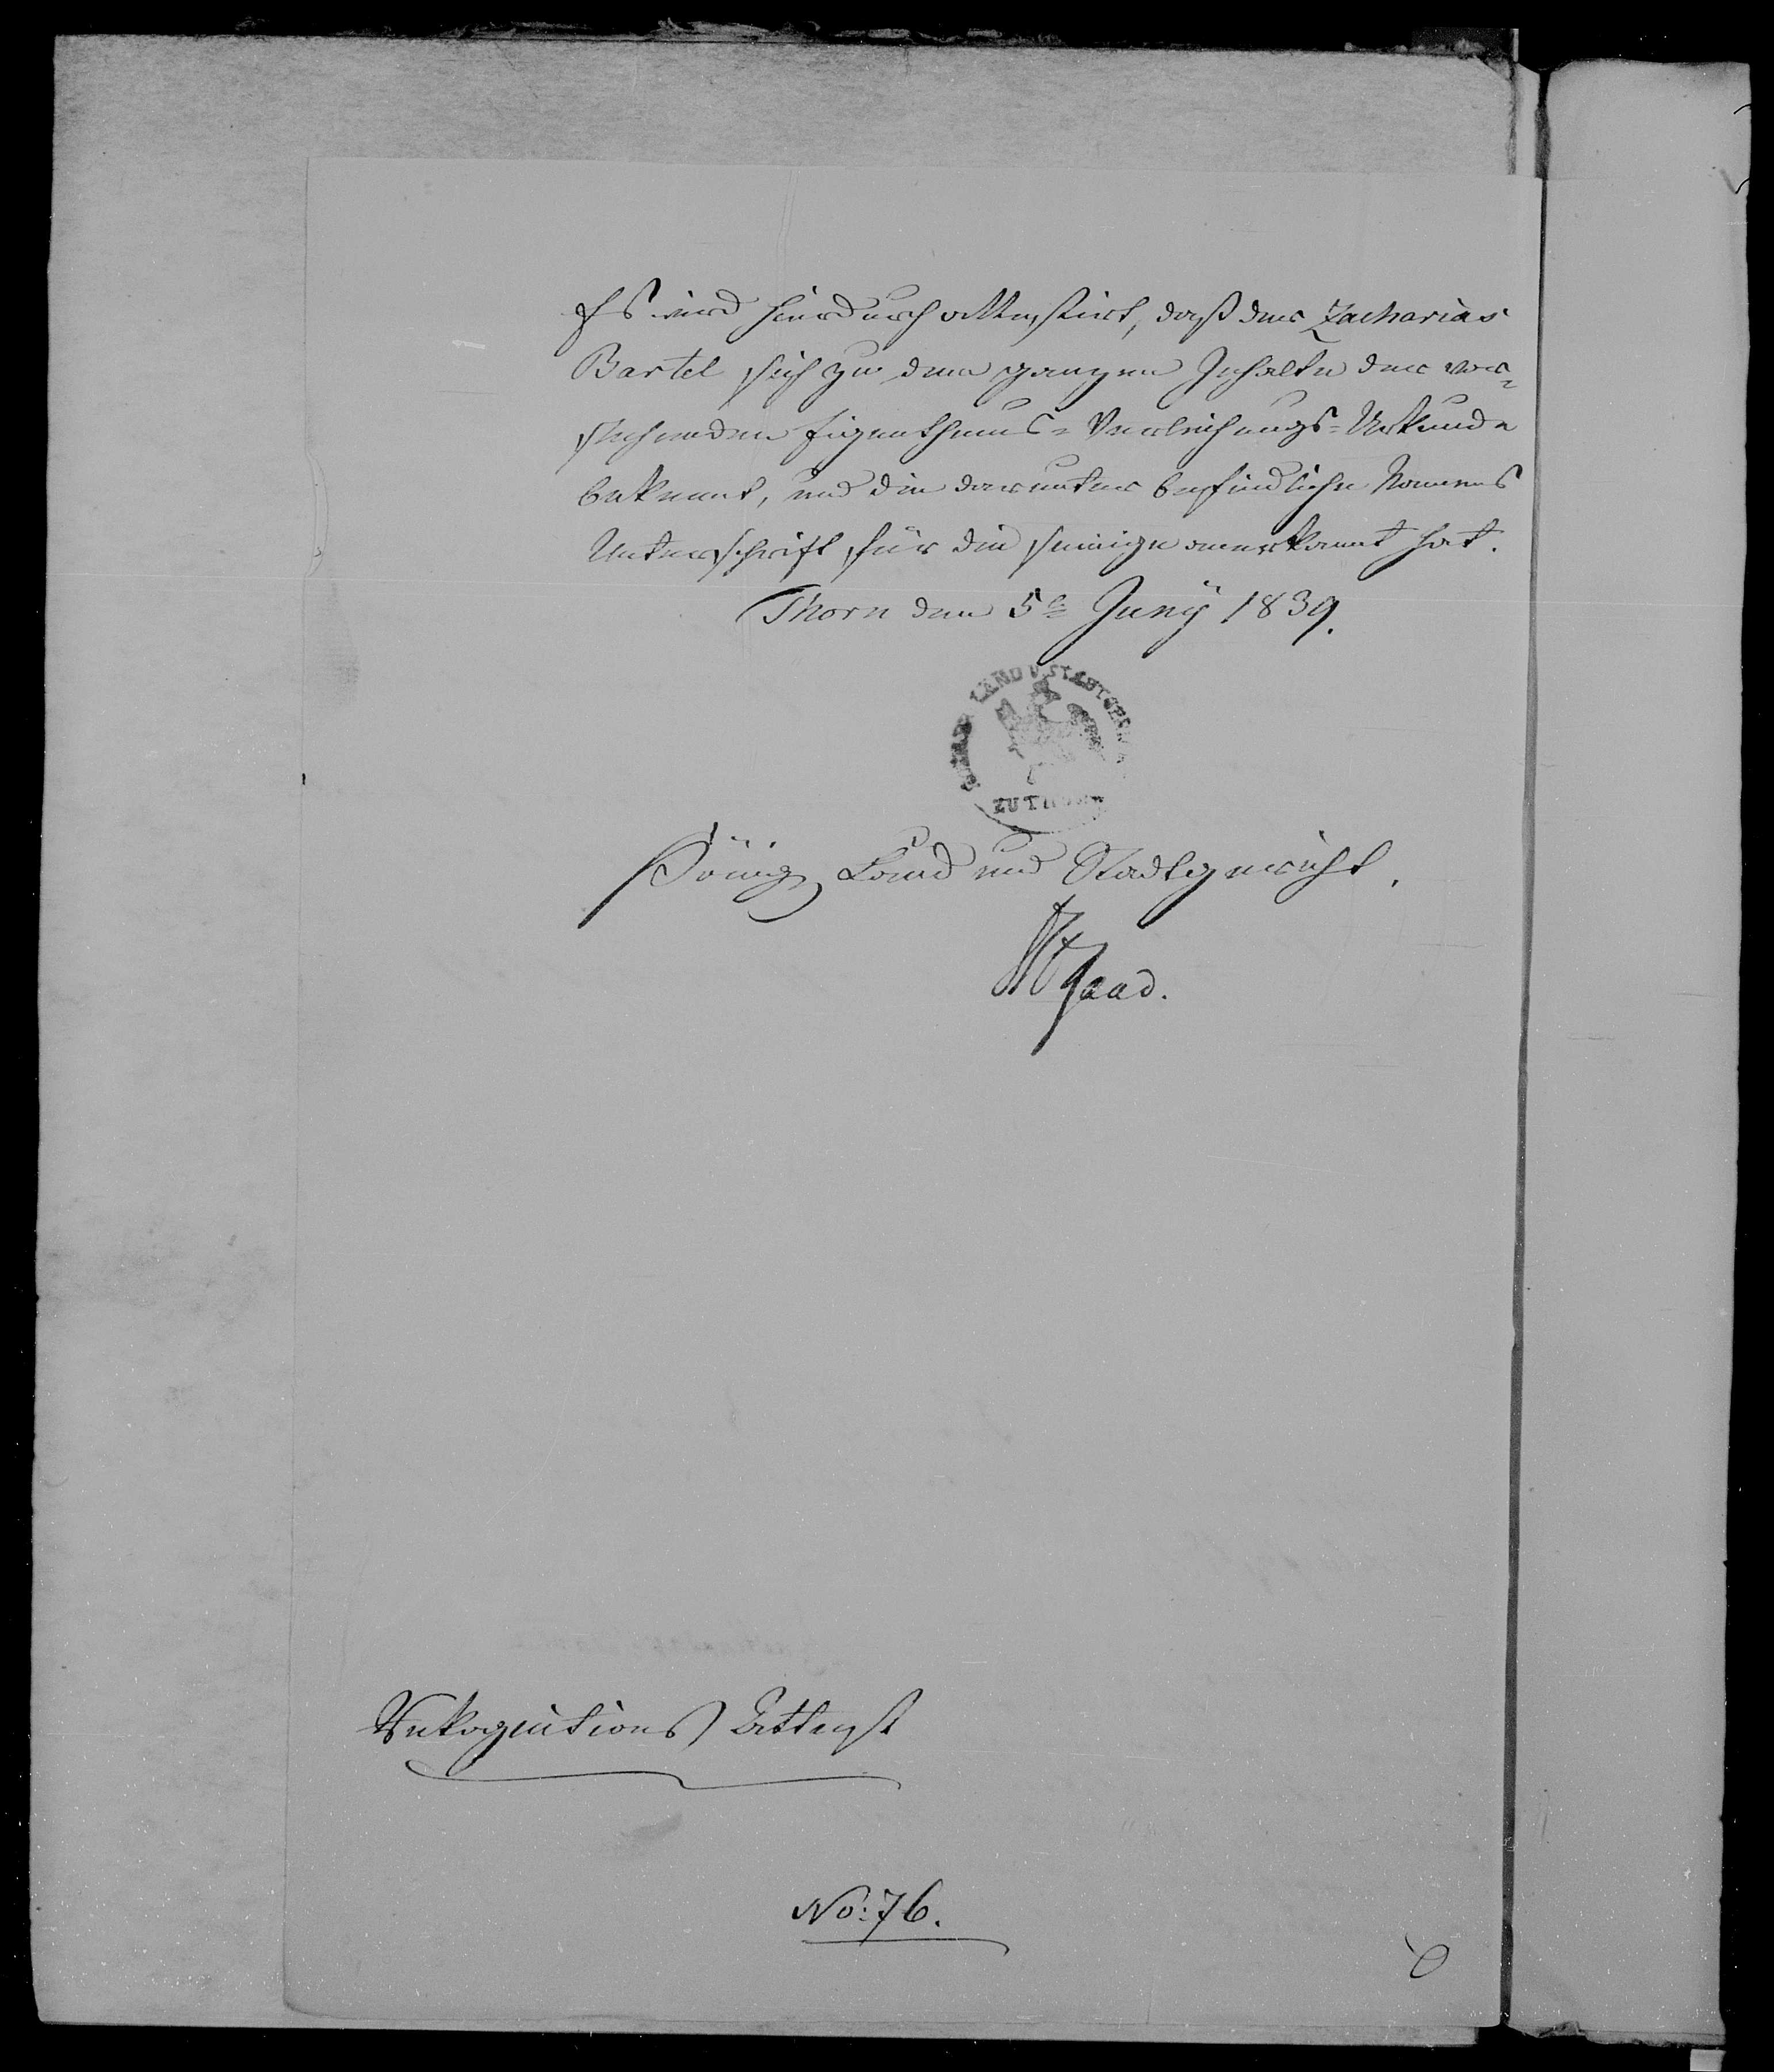 Es wird hierdurch attestirt, daß der Zacharias
Bartel sich zu dem ganzen Inhalte der vor=
stehenden Eigenthums=Verleihungs=Urkunde
bekannt, und die darunter befindliche Namens
Unterschrift für die seinige anerkannt hat.
Thorn den 5t Juny 1839.
LAND U. STADTGER
ZU THORN
Königl Land und Stadtgericht.
Rekognitions Attest
No: 76.